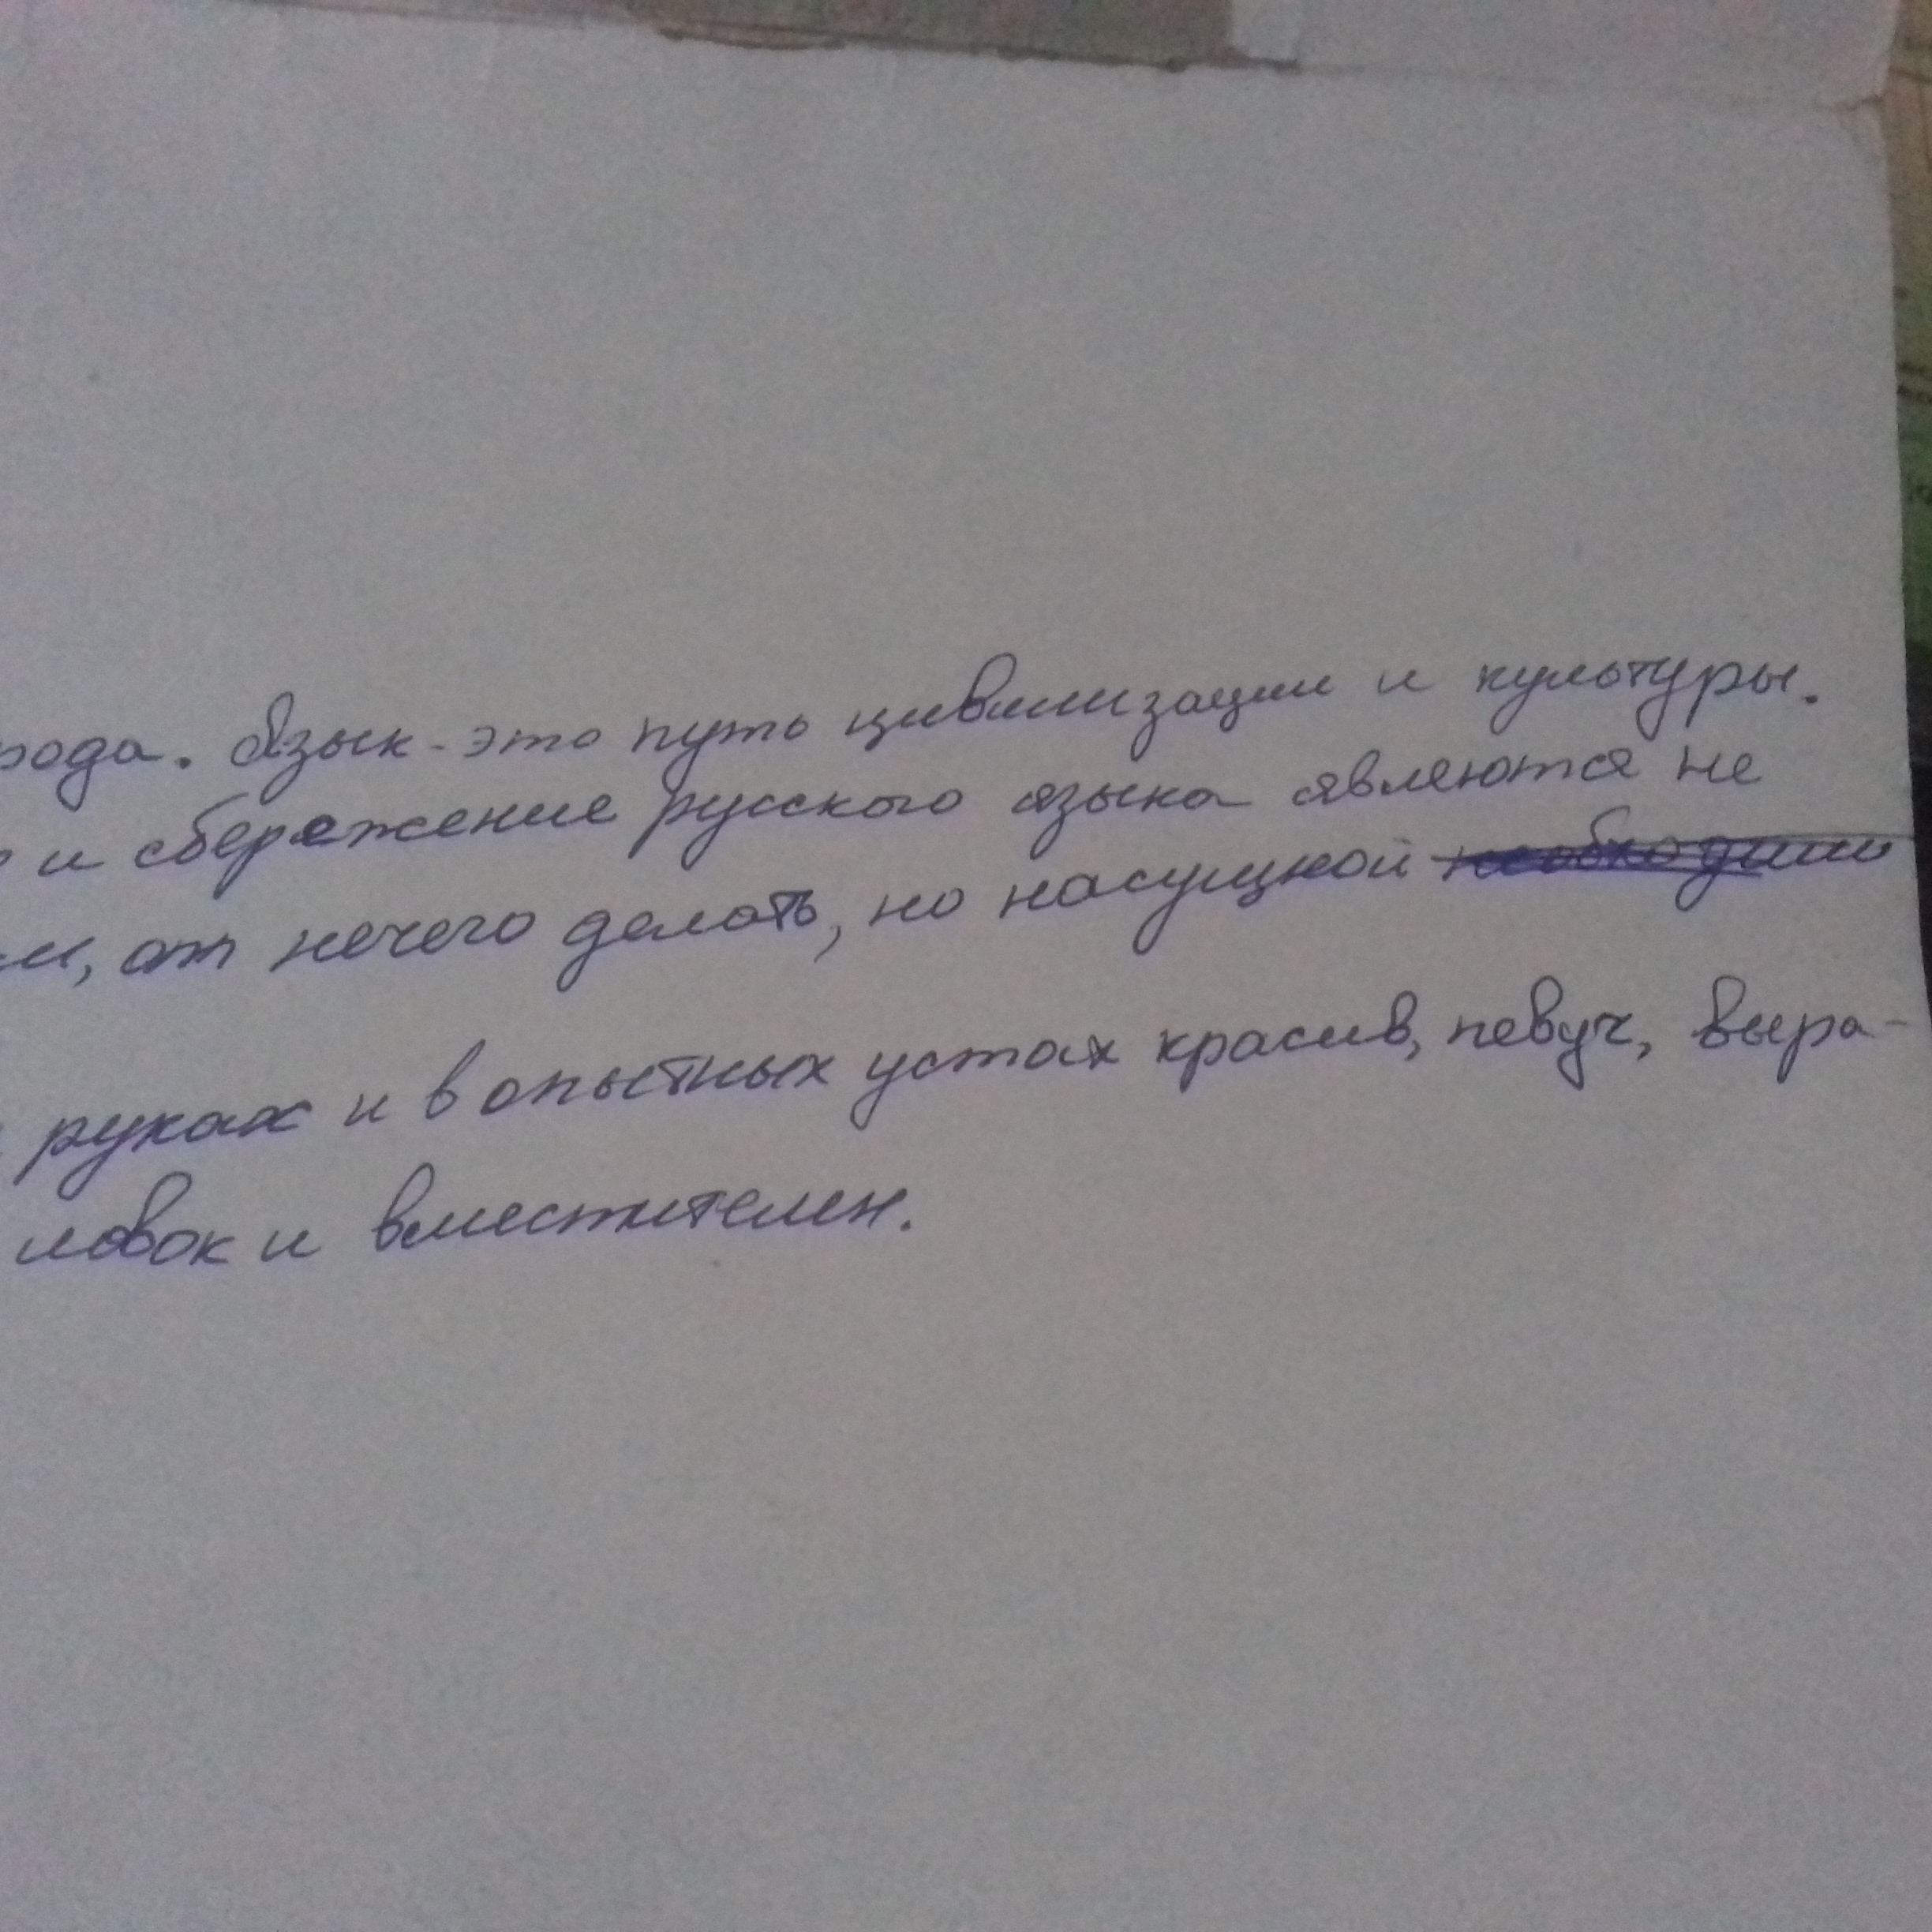 рода. Язык - это путь цивилизации и культуры.
и сбережение русского языка являются не
от нечего делать, но насущной необходимо
руках и в опытных устах красив, певуч, выра-
ловок и вместителен.